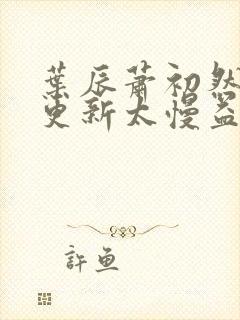 葉辰蕭初然
更新太慢盗
許魚